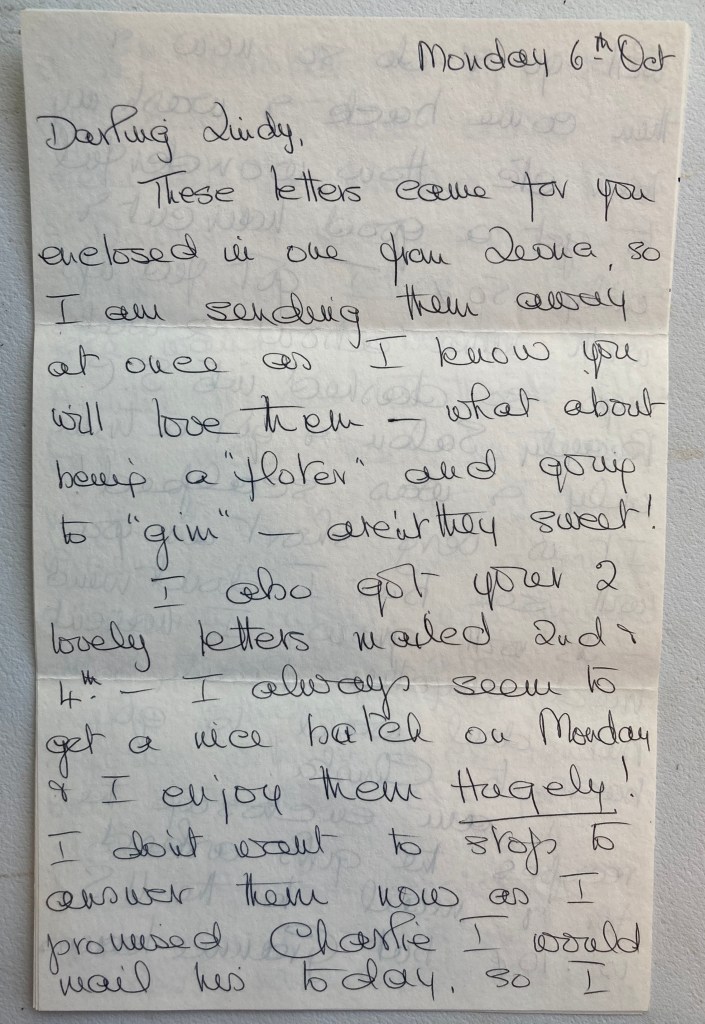 Monday 6th Oct
Darling Lindy,
These letters came for you
enclosed in one from Leona, so
I am sending them away
at once as I know you
will love them – what about
being a "floter" and going
to "gim" – aren't they sweet!
I also got your 2
lovely letters mailed 2nd &
4th. – I always seem to
get a nice batch on Monday
& I enjoy them Hugely!
I don't want to stop to
answer them now as I
promised Charlie I would
mail his today, so I